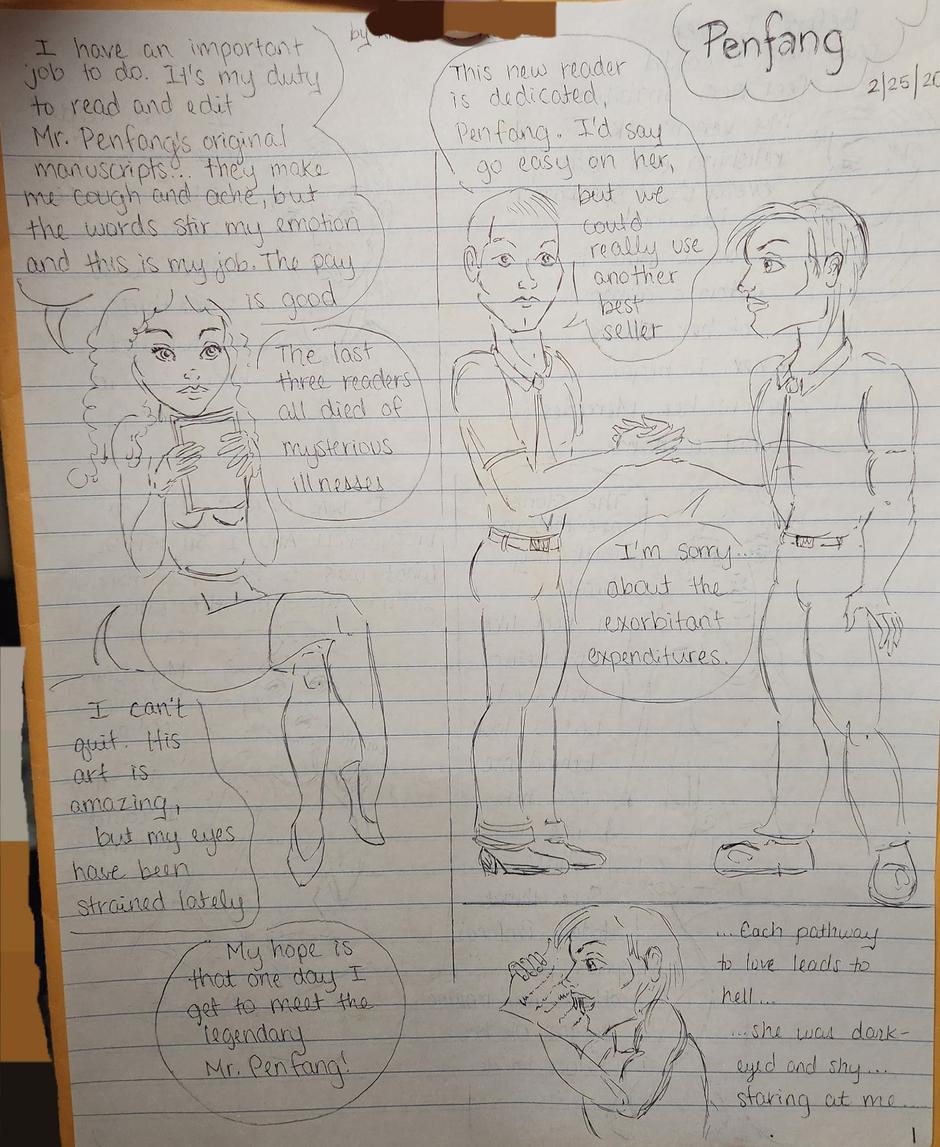 by
Penfang
2/25/20
I have an important
job to do. It's my duty
to read and edit
Mr. Penfang's original
manuscripts... they make
me cough and ache, but
the words stir my emotion
and this is my job. The pay
is good
The last
three readers
all died of
mysterious
illnesses
I can't
quit. His
art is
amazing,
but my eyes
have been
strained lately
My hope is
that one day I
get to meet the
legendary
Mr. Penfang!
This new reader
is dedicated,
Penfang. I'd say
go easy on her,
but we
could
really use
another
best
seller
I'm sorry...
about the
exorbitant
expenditures.
... Each pathway
to love leads to
hell...
...she was dark-
eyed and shy...
staring at me...
1